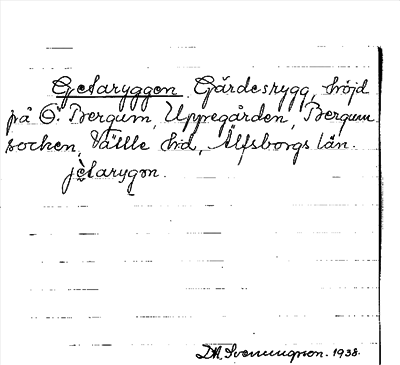 Getaryggen Gärdesrygg, höjd
på Ö. Bergum, Uppegården, Bergum
socken, Vättle hd, Älfsborgs län.
jètarygən.
D.A. Svenungsson. 1938.